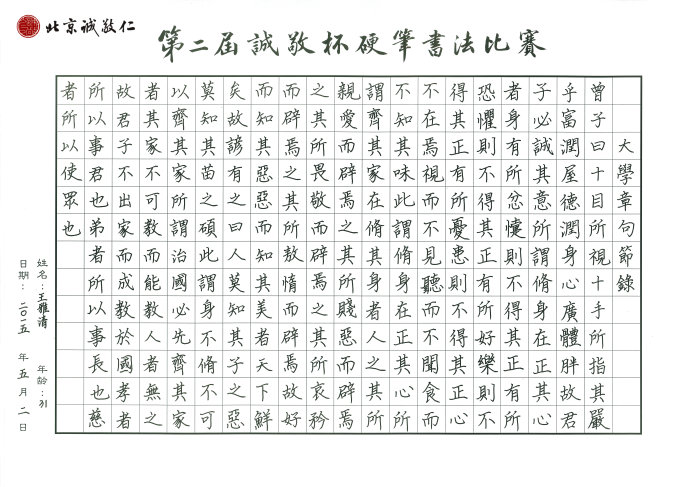 北京誠敬仁
第二屆誠敬杯硬筆書法比賽
大學章句節錄
曾子曰十目所視十手所指其嚴
乎富潤屋德潤身心廣體胖故君
子必誠其意所謂脩身在正其心
者身有所忿懥則不得其正有所
恐懼則不得其正有所好樂則不
得其正有所憂患則不得其正心
不在焉視而不見聽而不聞食而
不知其味此謂脩身在正其心所
謂齊其家在脩其身者人之其所
親愛而辟焉之其所賤惡而辟焉
之其所畏敬而辟焉之其所哀矜
而辟焉之其所敖惰而辟焉故好
而知其惡惡而知其美者天下鮮
矣故諺有之曰人莫知其子之惡
莫知其苗之碩此謂身不脩不可
以齊其家所謂治國必先齊其家
者其家不可教而能教人者無之
故君子不出家而成教於國孝者
所以事君也弟者所以事長也慈
者所以使眾也
姓名：王雅清 年齡：31
日期：二〇一五年五月二日